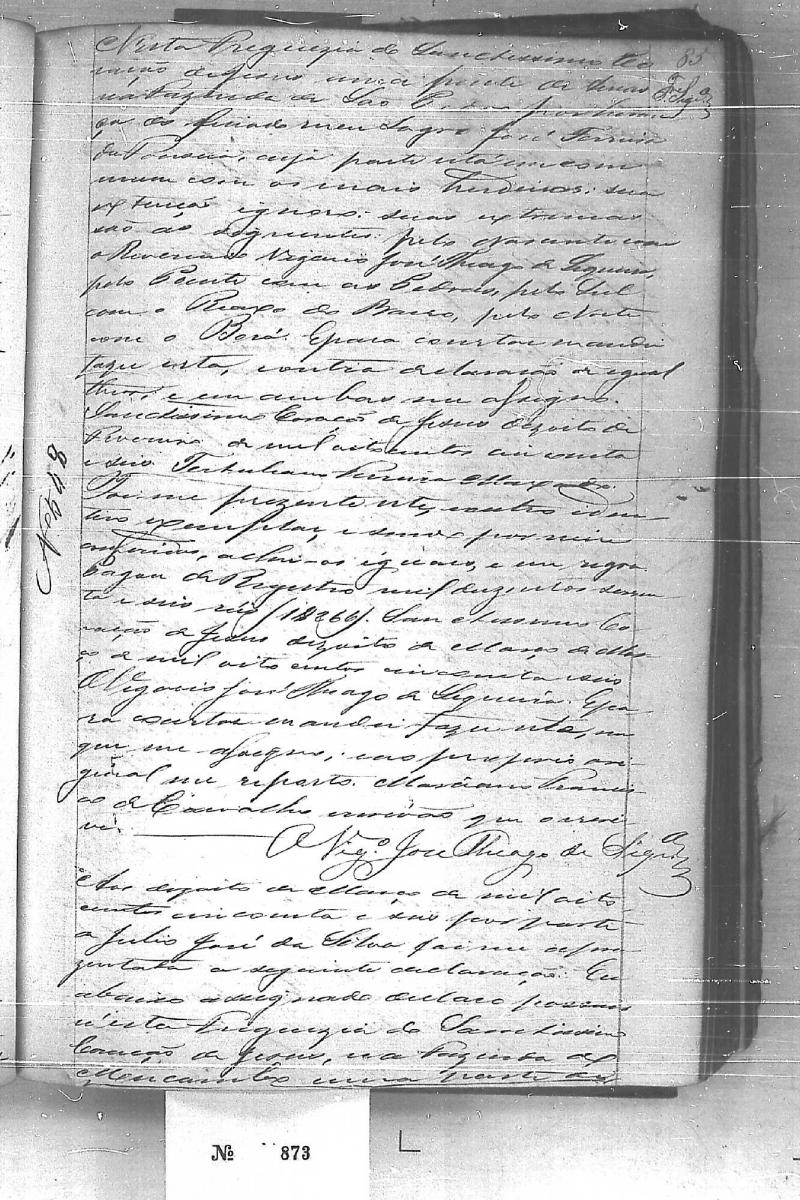 Nesta Freguezia do Sanctissimo Co
ração de Jesus uma parte de terras
na Fazenda de São Pedro por heran
ça do finado meu Sogro José Ferreira
da Fonseca, cuja parte está em com
mum com os mais herdeiros: sua
extenção ignoro: suas extremas
são as seguintes: pelo Nascente com
o Reverendo Vigario José Thiago de Siqueira,
pelo Poente com as Pedras, pelo Sul
com o Riaxo do Barro, pelo Norte
com o Borá. E para constar mandei
fazer esta, e outra declaração de igual
theor, e em ambas me assigno.
Sanctissimo Coração de Jesus dezoito de
Fevereiro de mil oito centos cincoenta
e seis. Tertuliano Pereira Maxado.
Foi-me prezente este, e outro iden
tico exemplar, e sendo por mim
conferidos, achei-os iguais, e em regra
Pagou de Registro mil duzentos sessen
ta e seis réis (1$266). Sanctissimo Co
ração de Jesus dezoito de Março de
de mil oito centos cincoenta e seis
O Vigario José Thiago de Siqueira. E pa
ra constar mandei fazer este, em
que me assigno; e ao proprio ori
ginal me reporto. Marciano Francis
co de Carvalho escrivão que o escre
vi.
O Vigº. José Thiago de Siqrª
Nº 548
Aos dezoito de Março de mil oito
centos cincoenta e seis por parte
de Julio José da Silva foi-me apre
zentada a seguinte declaração: Eu
abaixo assignado declaro possuir
n'esta Freguezia do Sanctissimo
Coração de Jesus, na Fazenda de
Mocambo uma parte de
85
Nº 873